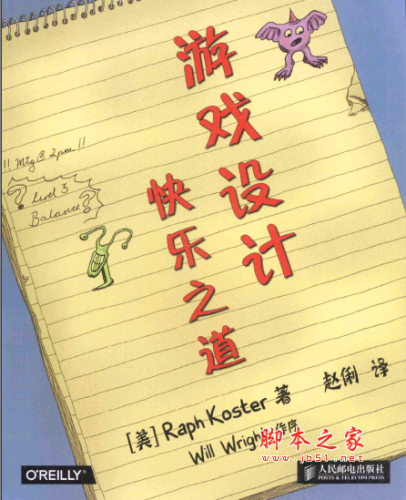 游戏设计
快乐之道
!! Mtg @ 2pm !!
? Level 3
Balance ?
[美] Raph Koster 著
赵俐 译
Will Wright 作序
脚本之家
www.jb51.net
O'REILLY
人民邮电出版社
POSTS & TELECOM PRESS